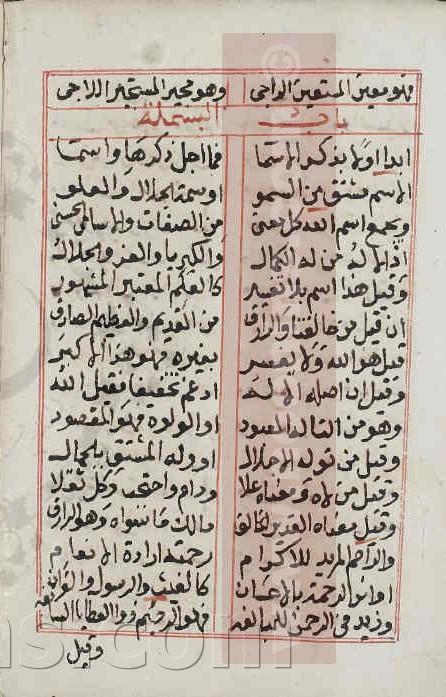 فهو معين المستعين الراجي وهو مجير المستجير اللاجي
باب البسملة
ابدا اولا بذكر الاسما فما اجل ذكرها واسما
الاسم مشتق من السمو او سمة الجلال والعلو
ويجمع اسم الله كل معنى من الصفات والاسامي الحسنى
اذ الاله من له الكمال والكبريا والعز والجلال
وقيل هذا اسم بلا تغيير كالعلم المعتبر المشهور
ان قيل من خالقنا والرازق من القديم والعظيم الصادق
قيل هو الله ولا يعبر بغيره فهو هذا الاكبر
وقيل ان اصله الاله ادغم تخفيفا فقيل الله
وهو من التاله المعبود او الولوه فهو المقصود
وقيل من توله الاجلال او وله المشتق بالجمال
وقيل من لاه ومعناه علا ودام واحتجب وكل نقلا
وقيل معناه القدير الخالق مالك ما سواه وهو الرازق
والراحم المريد للاكرام رحمته ارادة الانعام
اوانر الرحمة بالاحسان كالغيث والرسول والقران
وزيد في الرحمن للمبالغه فهو الرحيم ذو العطايا السابغه
وقيل